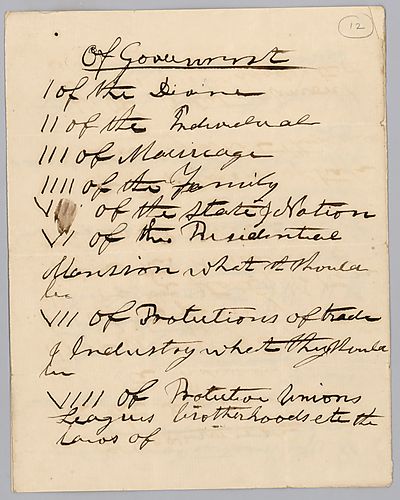 12
Of Government
I of the Divine
II of the Individual
III of Marriage
IIII of the Family
V of the State & Nation
VI of the Presidential
Mansion what it should
be
VII of Protections of trade
& Industry what they should
be
VIIII of Protective Unions
Leagues brotherhoods etc the
laws of